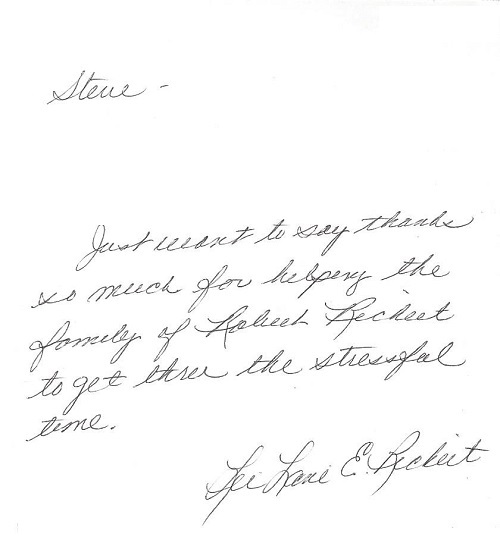 Steve -
Just want to say thanks
so much for helping the
family of Robert Rickert
to get three the stressful
time.
E. Rickert